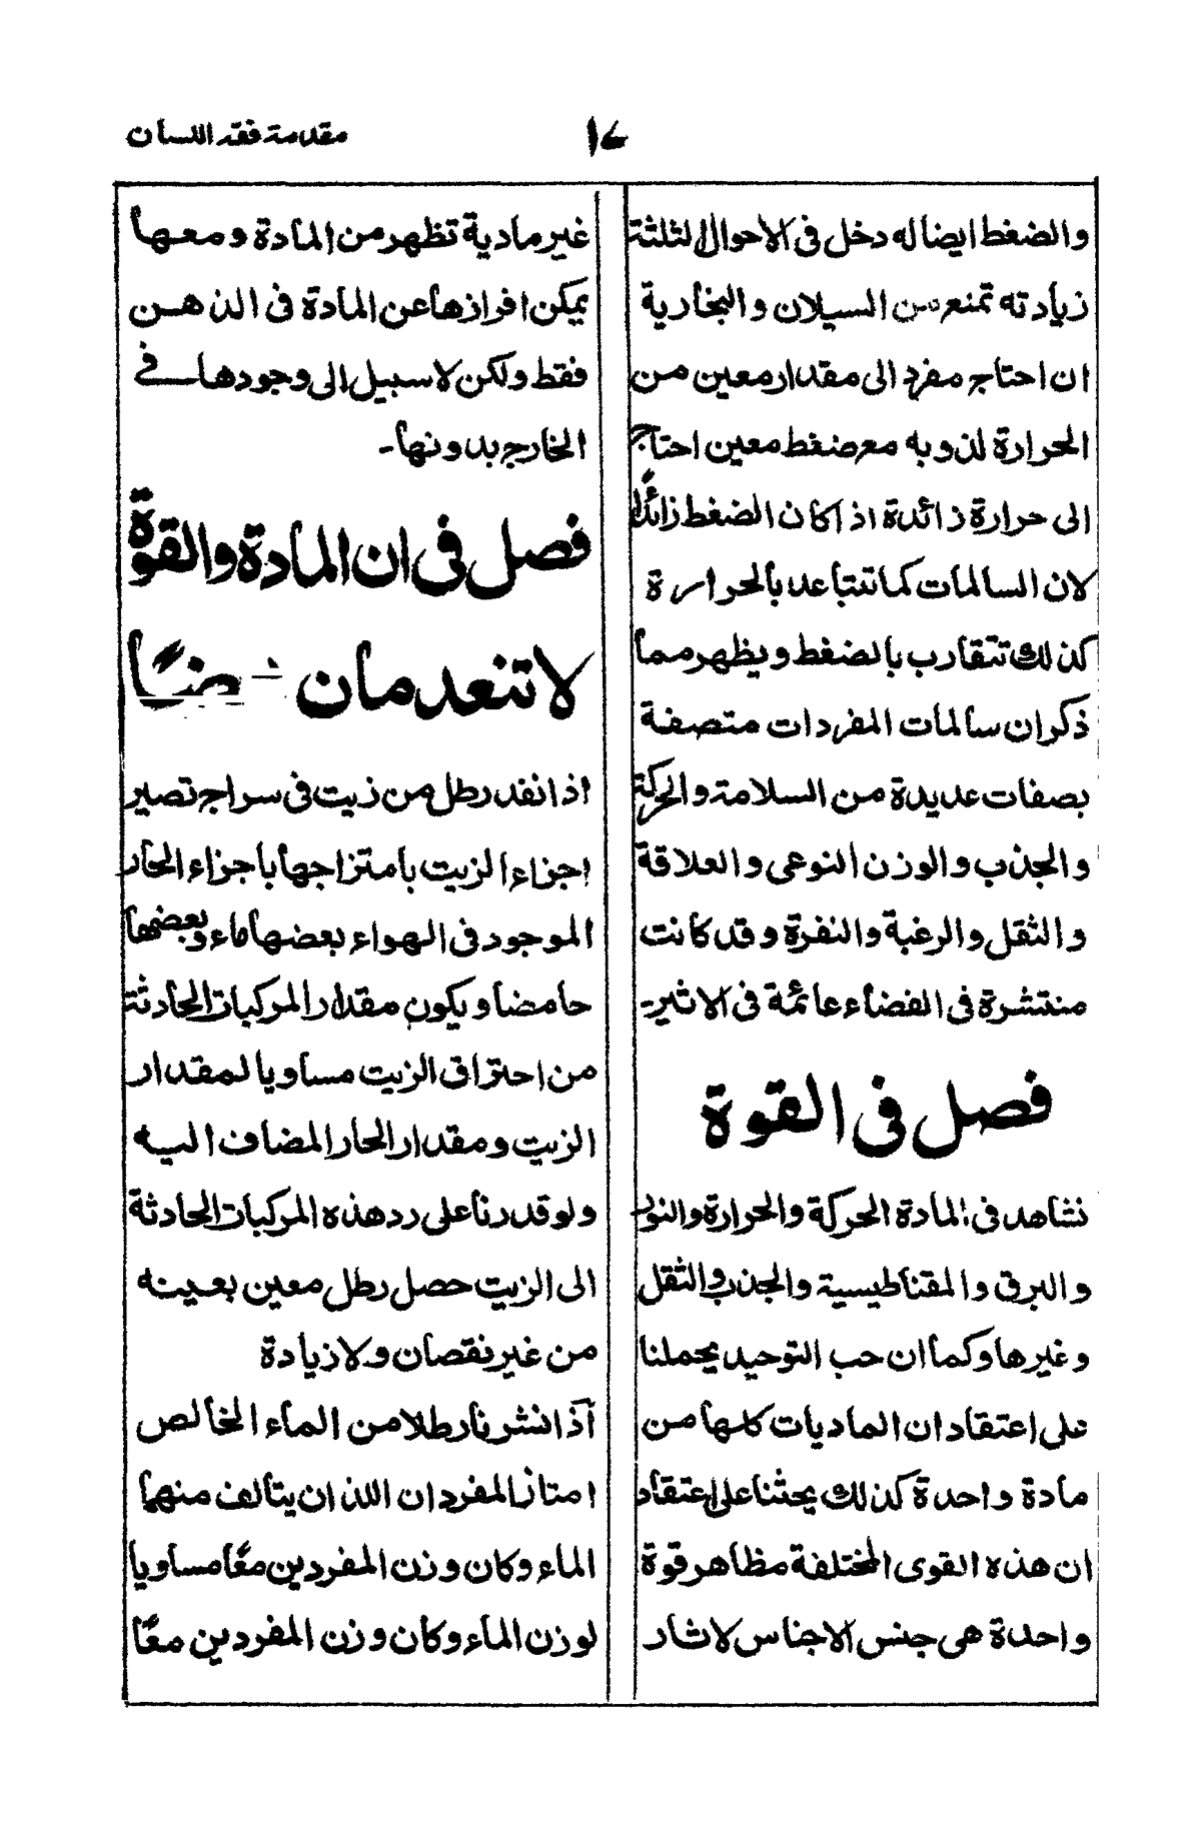 مقدمة فقه اللسان
١٤
والضغط ايضا له دخل فى الاحوال الثلثة
زيادته تمنع من السيلان والبخارية
ان احتاج مفرد الى مقدار معين من
الحرارة لذوبه مع ضغط معين احتاج
الى حرارة زائدة اذا كان الضغط زائدًا
لان السالمات كما تتباعد بالحرارة
كذلك تتقارب بالضغط ويظهر مما
ذكران سالمات المفردات متصفة
بصفات عديدة من السلامة والحركة
والجذب والوزن النوعى والعلاقة
والثقل والرغبة والنفرة وقد كانت
منتشرة فى الفضاء عائمة فى الاثير-
فصل فى القوة
نشاهد فى المادة الحركة والحرارة والنور
والبرق والمقناطيسية والجذب والثقل
وغيرها وكما ان حب التوحيد يحملنا
على اعتقاد ان الماديات كلها من
مادة واحدة كذلك يحثنا على اعتقاد
ان هذه القوى المختلفة مظاهر قوة
واحدة هى جنس الاجناس لاثار
غير مادية تظهر من المادة ومعها
يمكن افرازها عن المادة فى الذهن
فقط ولكن لاسبيل الى وجودها فى
الخارج بدونها-
فصل فى ان المادة والقوة
لا تنعدمان
اذا نفد رطل من زيت فى سراج تصير
اجزاء الزيت بامتزاجها باجزاء الحار
الموجود فى الهواء بعضها ماء وبعضها
حامضا ويكون مقدار المركبات الحادثة
من احتراق الزيت مساويا لمقدار
الزيت ومقدار الحار المضاف اليه
ولو قدرنا على رد هذه المركبات الحادثة
الى الزيت حصل رطل معين بعينه
من غير نقصان ولا زيادة
آذا نشرنا رطلا من الماء الخالص
امتاز المفردان اللذان يتالف منهما
الماء وكان وزن المفردين معًا مساويا
لوزن الماء وكان وزن المفردين معًا